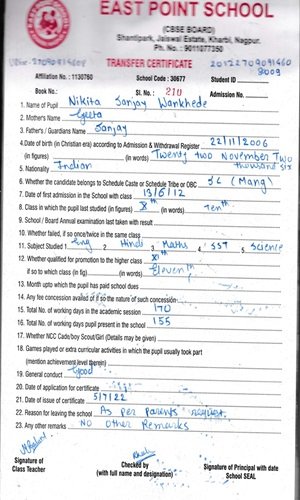 EAST POINT SCHOOL
(CBSE BOARD)
Shantipark, Jaiswal Estate, Kharbi, Nagpur.
Ph. No. : 9011077350
TRANSFER CERTIFICATE
Affiliation No. : 1130760 School Code : 30677 Student ID
Book No.: Sl. No. : 210 Admission No.
1. Name of Pupil Nikita Sanjay Wankhede
2. Mother's Name Geeta
3. Father's / Guardians Name Sanjay
4.Date of birth (in Christian era) according to Admission & Withdrawal Register 22/11/2006
(in figures) (in words) Twenty two November Two
5. Nationality Indian thousand six
6. Whether the candidate belongs to Schedule Caste or Schedule Tribe or OBC SC (Mang)
7. Date of first admission in the School with Class 13/6/12
8. Class in which the pupil last studied (in figures) Xth (in words) Tenth
9. School / Board Annual examination last taken with result
10. Whether failed, if so/once/twice in the same class
11. Subject Studied 1. Eng 2. Hindi 3. Maths 4. SST 5. Science
12. Whether qualified for promotion to the higher class XIth
if so to which class (in fig) (in words) Eleventh
13. Month upto which the pupil has paid school dues
14. Any fee concession availed of if so the nature of such concession
15. Total No. of working days in the academic session 170
16. Total No. of working days pupil present in the school 155
17. Whether NCC Cade/boy Scout/Girl (Details may be given)
18. Games played or extra curricular activities in which the pupil usually took part
(mention achievement level therein)
19. General conduct Good
20. Date of application for certificate
21. Date of issue of certificate 5/7/22
22. Reason for leaving the school As per parents request.
23. Any other remarks No Other Remarks
Signature of Checked by Signature of Principal with date
Class Teacher (with full name and designation) School SEAL